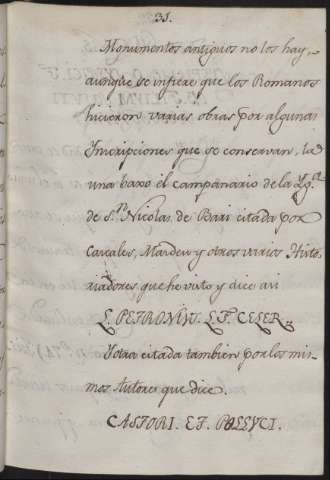 31.
Monumentos antiguos no los hay,
aunque se infiere que los Romanos
hicieron varias obras por algunas
Inscripciones que se conservan, la
una baxo el campanario de la Yg.ª
de S.n Nicolas de Bari citada por
Cascales, Marden y otros varios Histo
riadores que he visto y dice asi
L. PETRONIVS. L. F. CELER.
Y otra citada tambien por los mis
mos Autores que dice
CASTORI. ET. POLLUCI.